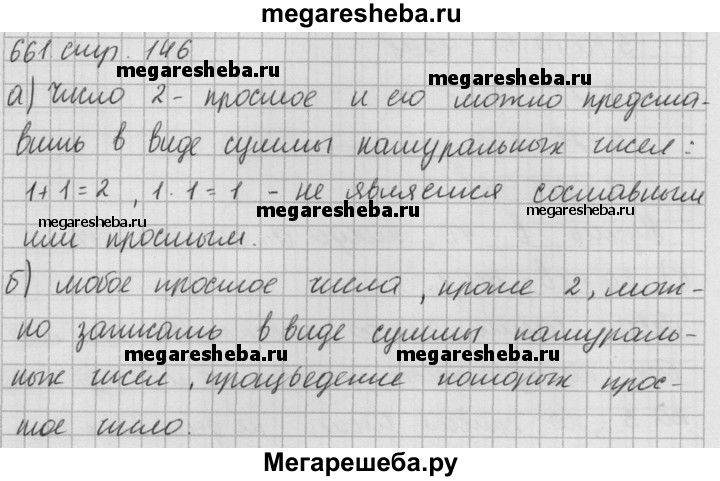 megaresheba.ru
661 стр. 146
megaresheba.ru megaresheba.ru
а) Число 2 - простое и его можно предста-
вить в виде суммы натуральных чисел:
1+1=2, 1·1=1 - не является составным
megaresheba.ru megaresheba.ru megaresheba.ru
или простым.
б) любое простое числа, кроме 2, мож-
но записать в виде суммы натураль-
megaresheba.ru megaresheba.ru
ных чисел, произведение которых прос-
тое число.
Мегарешеба.ру